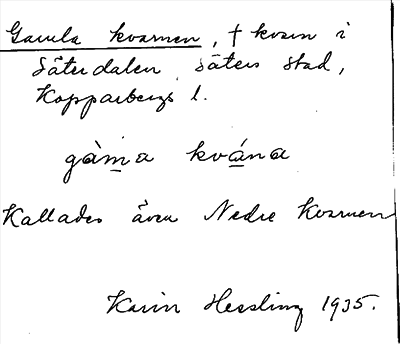 Gamla kvarnen, † kvarn i
Säterdalen, Säters stad,
Kopparbergs l.
gàm̲a kvá̲na
Kallades även Nedre Kvarnen
Karin Hessling 1935.